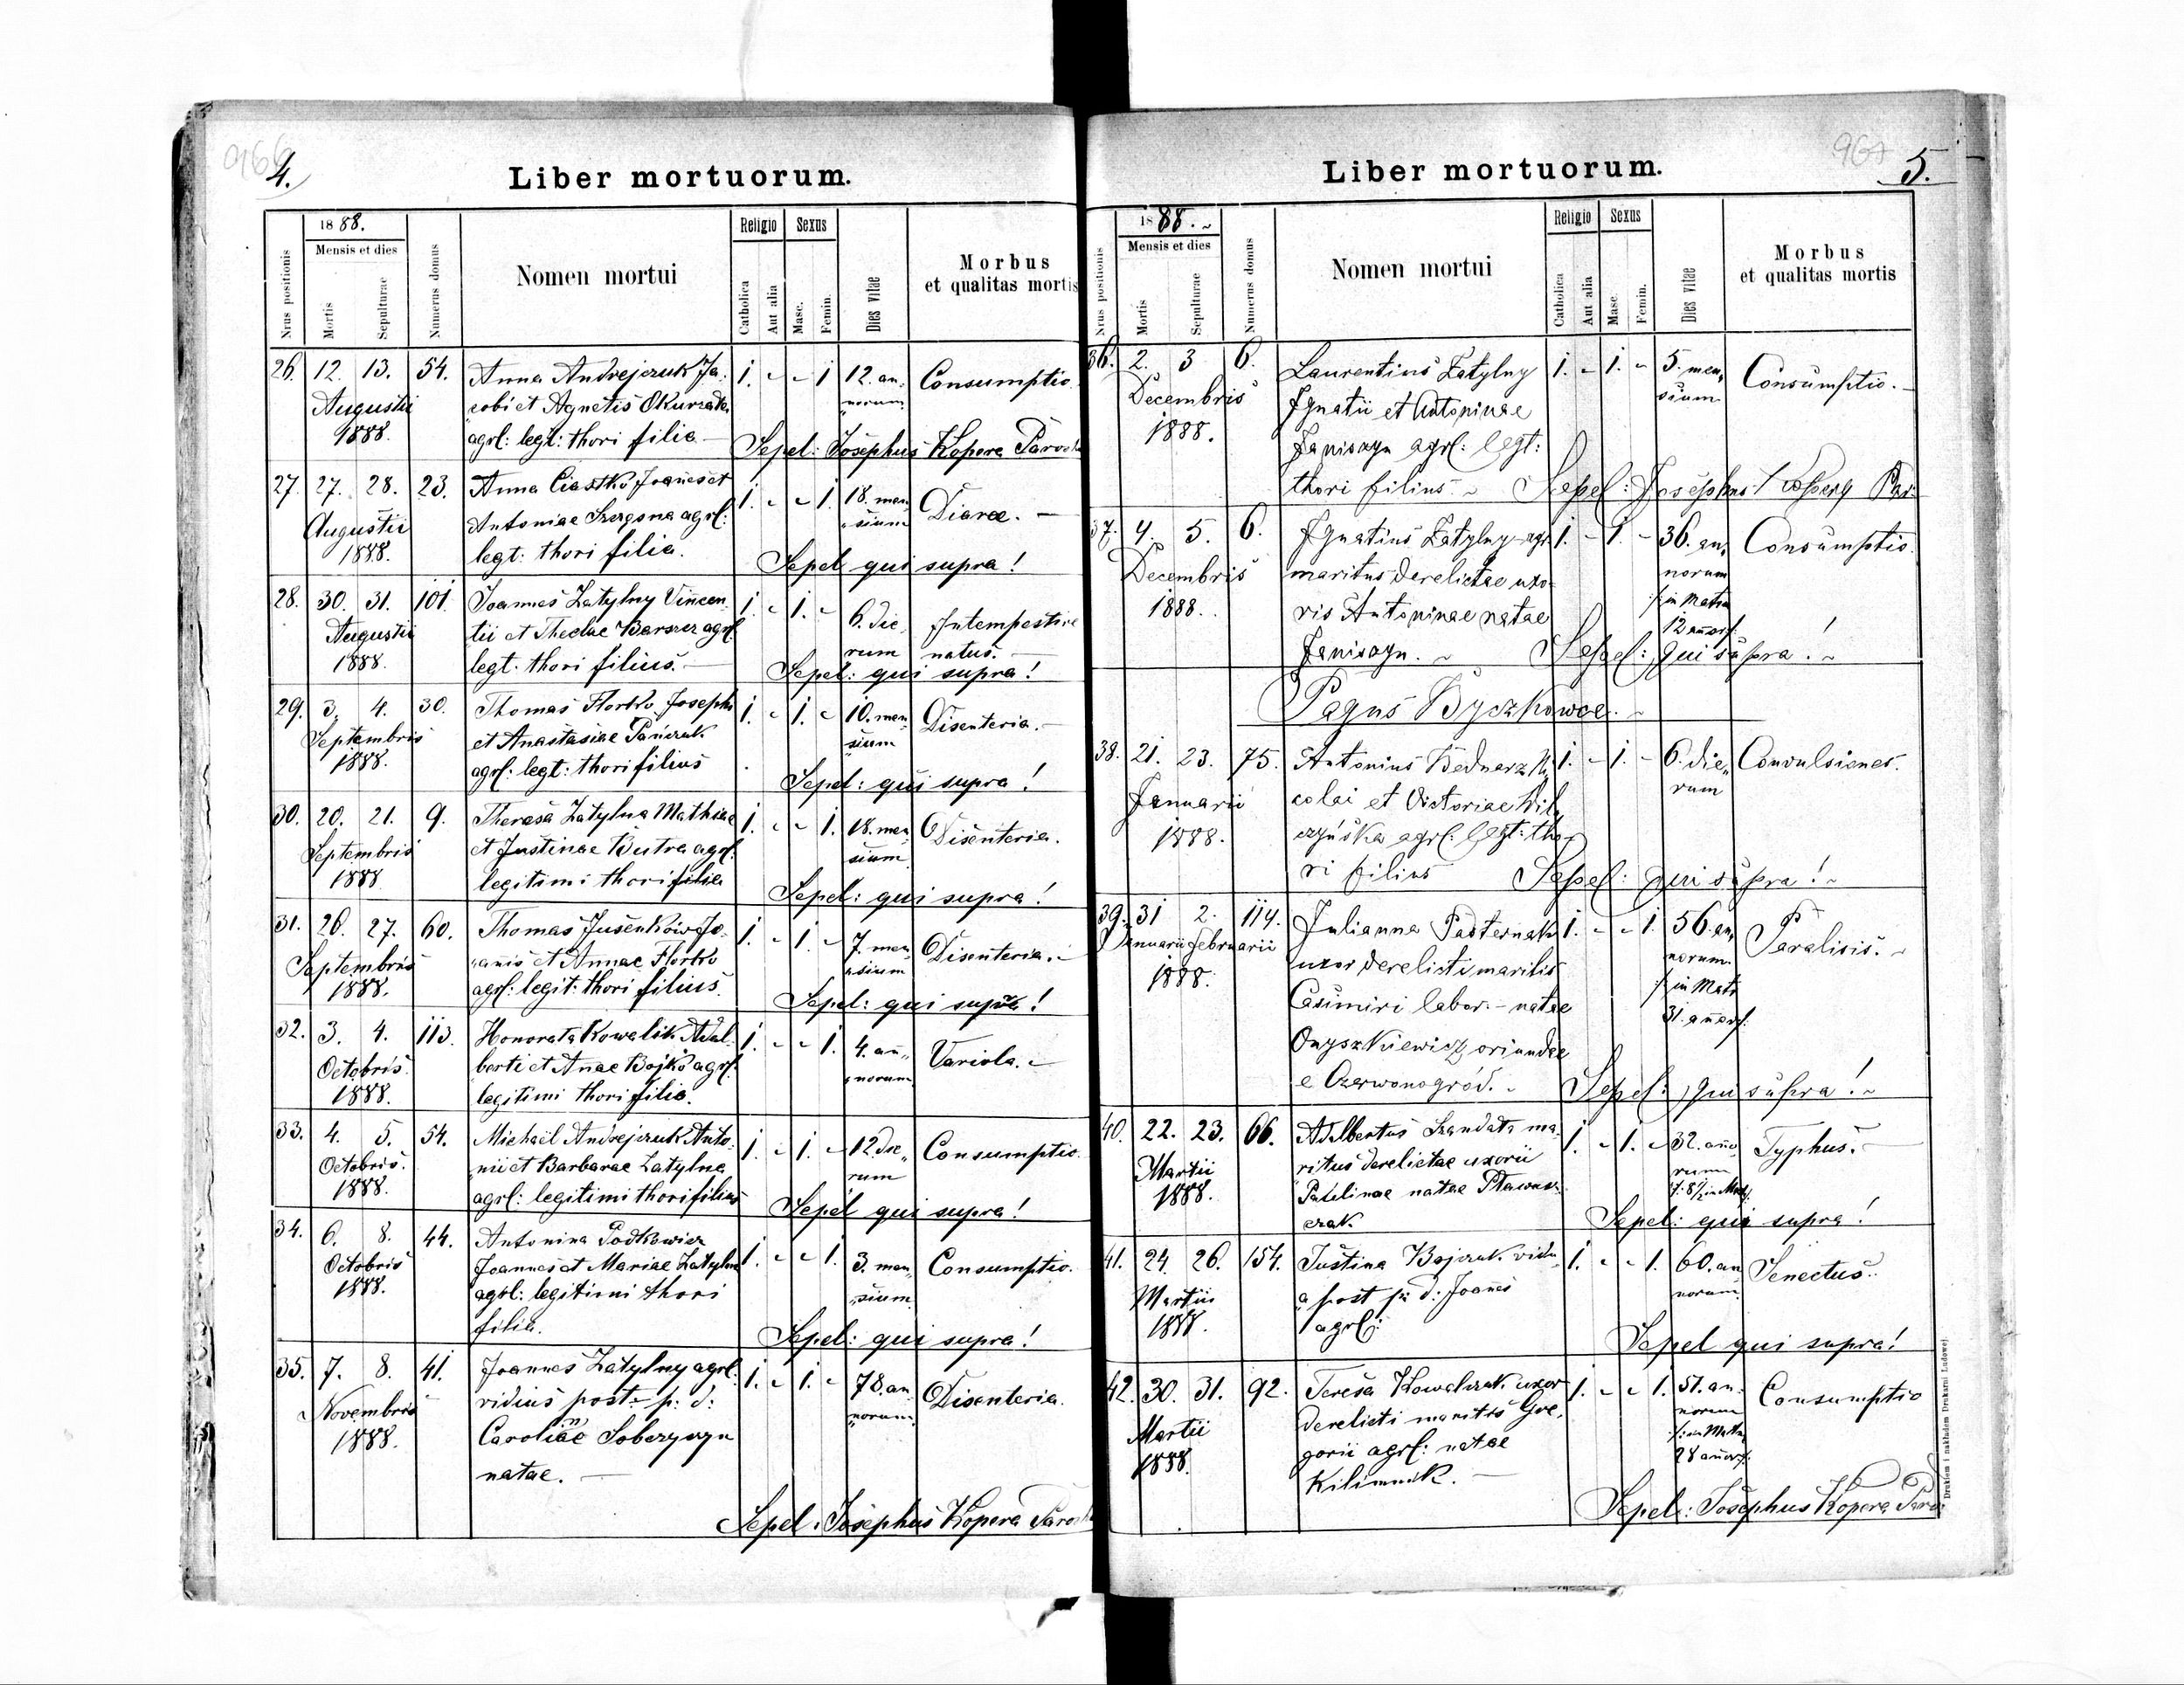 4.
Liber mortuorum.
1888.
Mensis et dies
Nrus positionis
Mortis
Sepulturae
Numerus domus
Nomen mortui
Religio
Catholica
Aut alia
Sexus
Masc.
Femin.
Dies vitae
Morbus
et qualitas mortis
26. 12. 13. 54. Anna Andrejczuk Ja= 1. - - 1 12. an= Consumptio.
Augusti cobi et Agnetis norum
1888. agrl: legt: thori filia
Sepel: Josephus Kopera
27. 27. 28. 23. Anna Ciastko Joannes et 1. - - 1. 18. men Diarea.
Augusti Antoniae agrl: sium
1888. legt: thori filia.
Sepel qui supra!
28. 30. 31. 101. Joannes Zatylny Vincen= 1. - 1. - 6. die Intempestive
Augusti tii et Theclae Barszcz agrl: rum natus.
1888. legt. thori filius.
Sepel: qui supra!
29. 3. 4. 30. Thomas Florko Josephi 1. - 1. - 10. men Disenteria.
Septembris et Anastasiae Panczuk sium
1888. agrl: legt: thori filius
Sepel: qui supra!
30. 20. 21. 9. Theresa Zatylna Mathiae 1. - - 1. 18. men Disenteria.
Septembris et Justinae Butra agrl: sium
1888 legitimi thori filia
Sepel: qui supra!
31. 26. 27. 60. Thomas Jusenków Jo= 1. - 1. - 7. men Disenteria.
Septembris anis et Annae Florko sium
1888. agrl: legit: thori filius.
Sepel: qui supra!
32. 3. 4. 113. Honorata Kowalik Adal= 1. - - 1. 4. an Variola.
Octobris. berti et Anae Bojko agrl: norum
1888. legitimi thori filia.
33. 4. 5. 54. Michaël Andrejczuk Anto= 1. - 1. - 12. die Consumptio
Octobris. nii et Barbarae Zatylna rum
1888. agrl: legitimi thori filius
Sepel qui supra!
34. 6. 8. 44. Antonina Podkowicz 1. - - 1. 3. men Consumptio.
Octobris Joannes et Mariae Zatylna sium
1888. agrl: legitimi thori
filia.
Sepel: qui supra!
35. 7. 8. 41. Joannes Zatylny agrl: 1. - 1. - 78. an Disenteria.
Novembris viduus post p: d: norum
1888. Carolinae
natae.
Sepel: Josephus Kopera
5.
Liber mortuorum.
1888.
Mensis et dies
Nrus positionis
Mortis
Sepulturae
Numerus domus
Nomen mortui
Religio
Catholica
Aut alia
Sexus
Masc.
Femin.
Dies vitae
Morbus
et qualitas mortis
36. 2. 3 6. Laurentius Zatylny 1. - 1. - 5. men Consumptio.
Decembris Ignatii et Antoninae sium
1888. Faniszyn agrl: legt:
thori filius
Sepel: Josephus Kopera Par
37. 4. 5. 6. Ignatius Zatylny agr 1. - 1. - 36. an Consumptio.
Decembris maritus derelictae uxo= norum
1888. ris Antoninae natae in Matr
Faniszyn. 12 annor.
Sepel: qui supra!
Pagus Byczkowce.
38. 21. 23. 75. Antonius Bednarz Ni 1. - 1. - 6. die Convulsiones.
Januarii colai et Victoriae rum
1888. agrl: legt: tho
ri filius
Sepel: qui supra!
39. 31 2. 114. Julianna Pasternak 1. - - 1. 56. an Paralisis.
Januarii Februarii uxor derelicti mariti norum
1888. Casimiri labor. natae in Matr
Onyszkiewicz oriundae 31. annor.
e Czerwonogród.
Sepel: qui supra!
40. 22. 23. 66. Adelbertus Szandata ma= 1. - 1. - 32. ano Typhus.
Martii ritus derelictae uxorii rum
1888. natae
czak
Sepel: qui supra!
41. 24. 26. 154. Justina Bojczuk vidu 1. - - 1. 60. an Senectus.
Martii a post p: d: Joanes norum
1888. agrl:
Sepel qui supra!
42. 30. 31. 92. Teresa Kowalczuk uxor 1. - - 1. 51. an Consumptio
Martii derelicti maritis Gre norum
1888. gorii agrl: natae in Matr
Kilimnik. 28 annor.
Sepel: Josephus Kopera
Drukiem i nakładem Drukarni Ludowej.